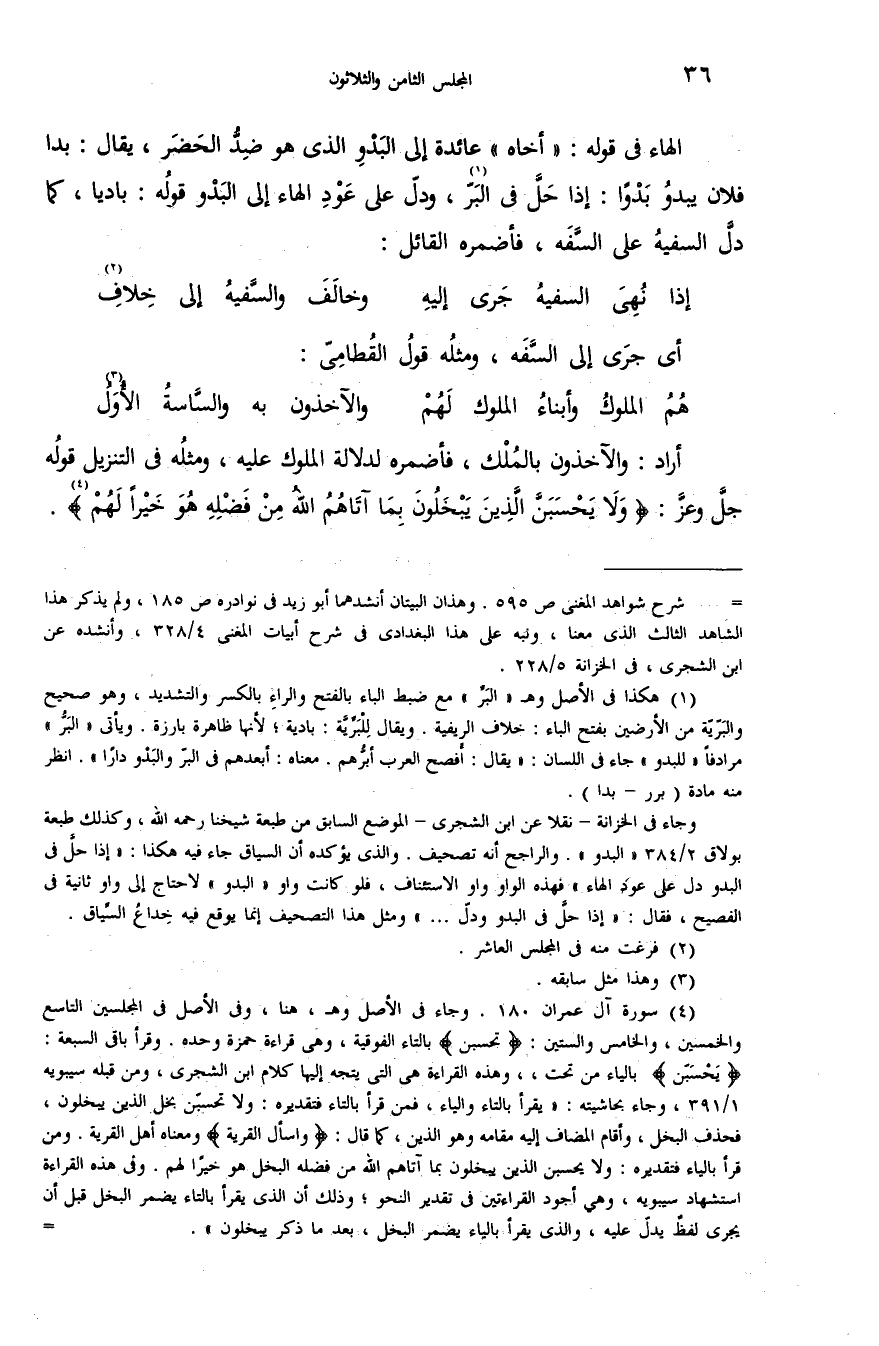 ٣٦
المجلس الثامن والثلاثون
الهاء فى قوله : « أخاه » عائدة إلى البَدْوِ الذى هو ضِدُّ الحَضَر ، يقال : بدا
فلان يبدوُ بَدْوًا : إذا حَلَّ فى البَرّ(١) ، ودلّ على عَوْدِ الهاء إلى البَدْو قولُه : باديا ، كما
دلَّ السفيهُ على السَّفَه ، فأضمره القائل :
إذا نُهِىَ السفيهُ جَرى إليهِ وخالَفَ والسَّفيهُ إلى خِلافِ(٢)
أى جرَى إلى السَّفَه ، ومثلُه قولُ القُطامِىّ :
هُمُ الملوكُ وأبناءُ الملوك لَهُمْ والآخذون به والسَّاسةُ الأُوَلُ(٣)
أراد : والآخذون بالمُلْك ، فأضمره لدلالة الملوك عليه ، ومثلُه فى التنزيل قولُه
جلَّ وعزَّ : ﴿ وَلَا يَحْسَبَنَّ الَّذِينَ يَبْخَلُونَ بِمَا آتَاهُمُ اللهُ مِنْ فَضْلِهِ هُوَ خَيْراً لَهُمْ ﴾(٤) .
= شرح شواهد المغنى ص ٥٩٥ . وهذان البيتان أنشدهما أبو زيد فى نوادره ص ١٨٥ ، ولم يذكر هذا
الشاهد الثالث الذى معنا ، ونبه على هذا البغدادى فى شرح أبيات المغنى ٣٢٨/٤ ، وأنشده عن
ابن الشجرى ، فى الخزانة ٢٢٨/٥ .
(١) هكذا فى الأصل وهـ « البَرّ » مع ضبط الباء بالفتح والراءِ بالكسر والتشديد ، وهو صحيح
والبَرّيّة من الأرضين بفتح الباء : خلاف الريفية . ويقال لِلْبَرِّيَّة : بادية ؛ لأنها ظاهرة بارزة . ويأتى « البَرُّ »
مرادفاً « للبدو » جاء فى اللسان : « يقال : أفصح العرب أبرُّهم . معناه : أبعدهم فى البرّ والبَدْو دارًا » . انظر
منه مادة ( برر – بدا ) .
وجاء فى الخزانة – نقلا عن ابن الشجرى – الموضع السابق من طبعة شيخنا رحمه الله ، وكذلك طبعة
بولاق ٣٨٤/٢ « البدو » . والراجح أنه تصحيف . والذى يؤكده أن السياق جاء فيه هكذا : « إذا حلَّ فى
البدو دل على عود الهاء » فهذه الواو واو الاستئناف ، فلو كانت واو « البدو » لاحتاج إلى واو ثانية فى
الفصيح ، فقال : « إذا حلَّ فى البدو ودلّ ... » ومثل هذا التصحيف إنما يوقع فيه خِداعُ السِّياق .
(٢) فرغت منه فى المجلس العاشر .
(٣) وهذا مثل سابقه .
(٤) سورة آل عمران ١٨٠ . وجاء فى الأصل وهـ ، هنا ، وفى الأصل فى المجلسين التاسع
والخمسين ، والخامس والستين : ﴿ تحسبن ﴾ بالتاء الفوقية ، وهى قراءة حمزة وحده . وقرأ باقى السبعة :
﴿ يَحْسَبّن ﴾ بالياء من تحت ، ، وهذه القراءة هى التى يتجه إليها كلام ابن الشجرى ، ومن قبله سيبويه
٣٩١/١ ، وجاء بحاشيته : « يقرأ بالتاء والياء ، فمن قرأ بالتاء فتقديره : ولا تحسبّن بخل الذين يبخلون ،
فحذف البخل ، وأقام المضاف إليه مقامه وهو الذين ، كما قال : ﴿ واسأل القرية ﴾ ومعناه أهل القرية . ومن
قرأ بالياء فتقديره : ولا يحسبن الذين يبخلون بما آتاهم الله من فضله البخل هو خيرًا لهم . وفى هذه القراءة
استشهاد سيبويه ، وهي أجود القراءتين فى تقدير النحو ؛ وذلك أن الذى يقرأ بالتاء يضمر البخل قبل أن
يجرى لفظٌ يدلّ عليه ، والذى يقرأ بالياء يضمر البخل ، بعد ما ذكر يبخلون » . =